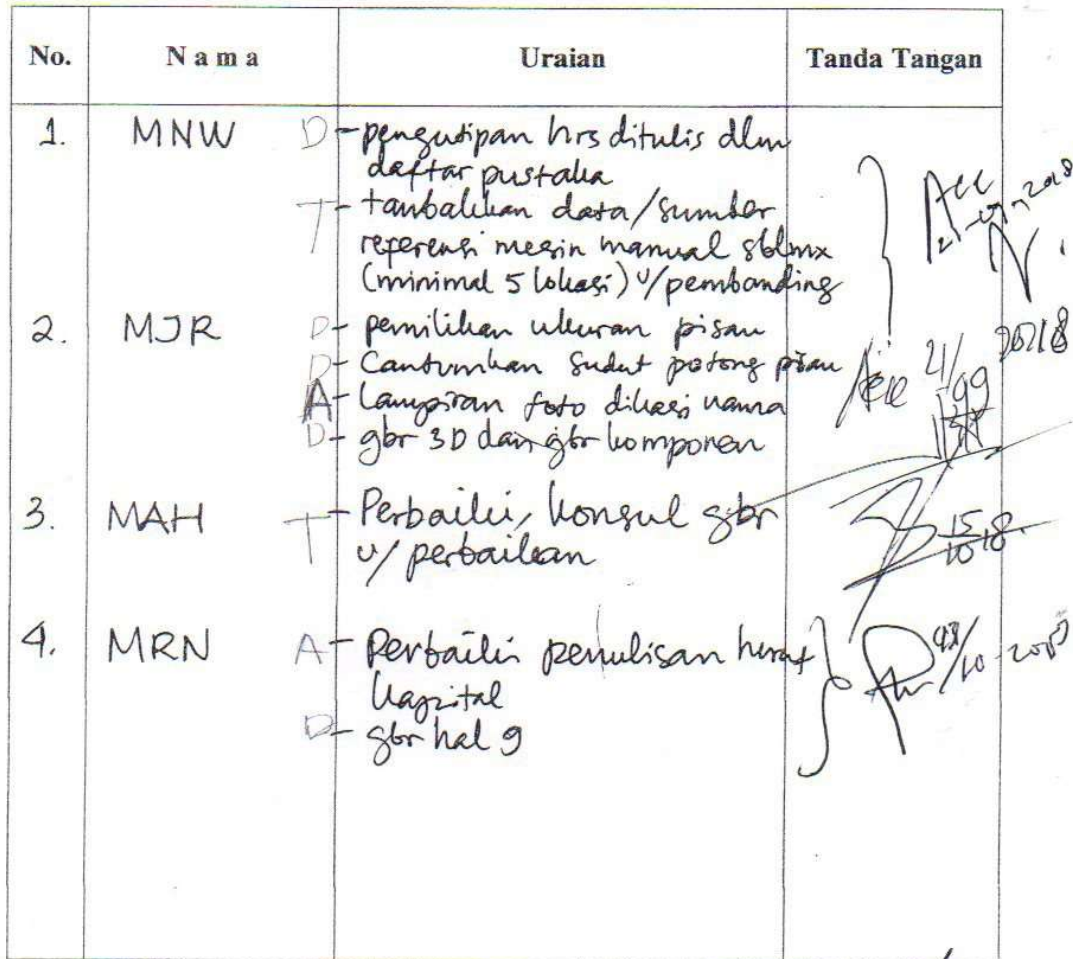 No. N a m a Uraian Tanda Tangan
1. MNW D - pengutipan hrs ditulis dlm
daftar pustaka
T - tambahkan data/sumber
referensi mesin manual sblmx
(minimal 5 lokasi) u/pembanding
Acc
2. MJR D - pemilihan ukuran pisau
D - Cantumkan sudut potong pisau
A - Lampiran foto dikasi nama
D - gbr 3D dan gbr komponen
Acc 21/09 2018
3. MAH T - Perbaiki, konsul gbr
u/ perbaikan
15/10 18
4. MRN A - Perbaiki penulisan huruf
kapital
D - gbr hal 9